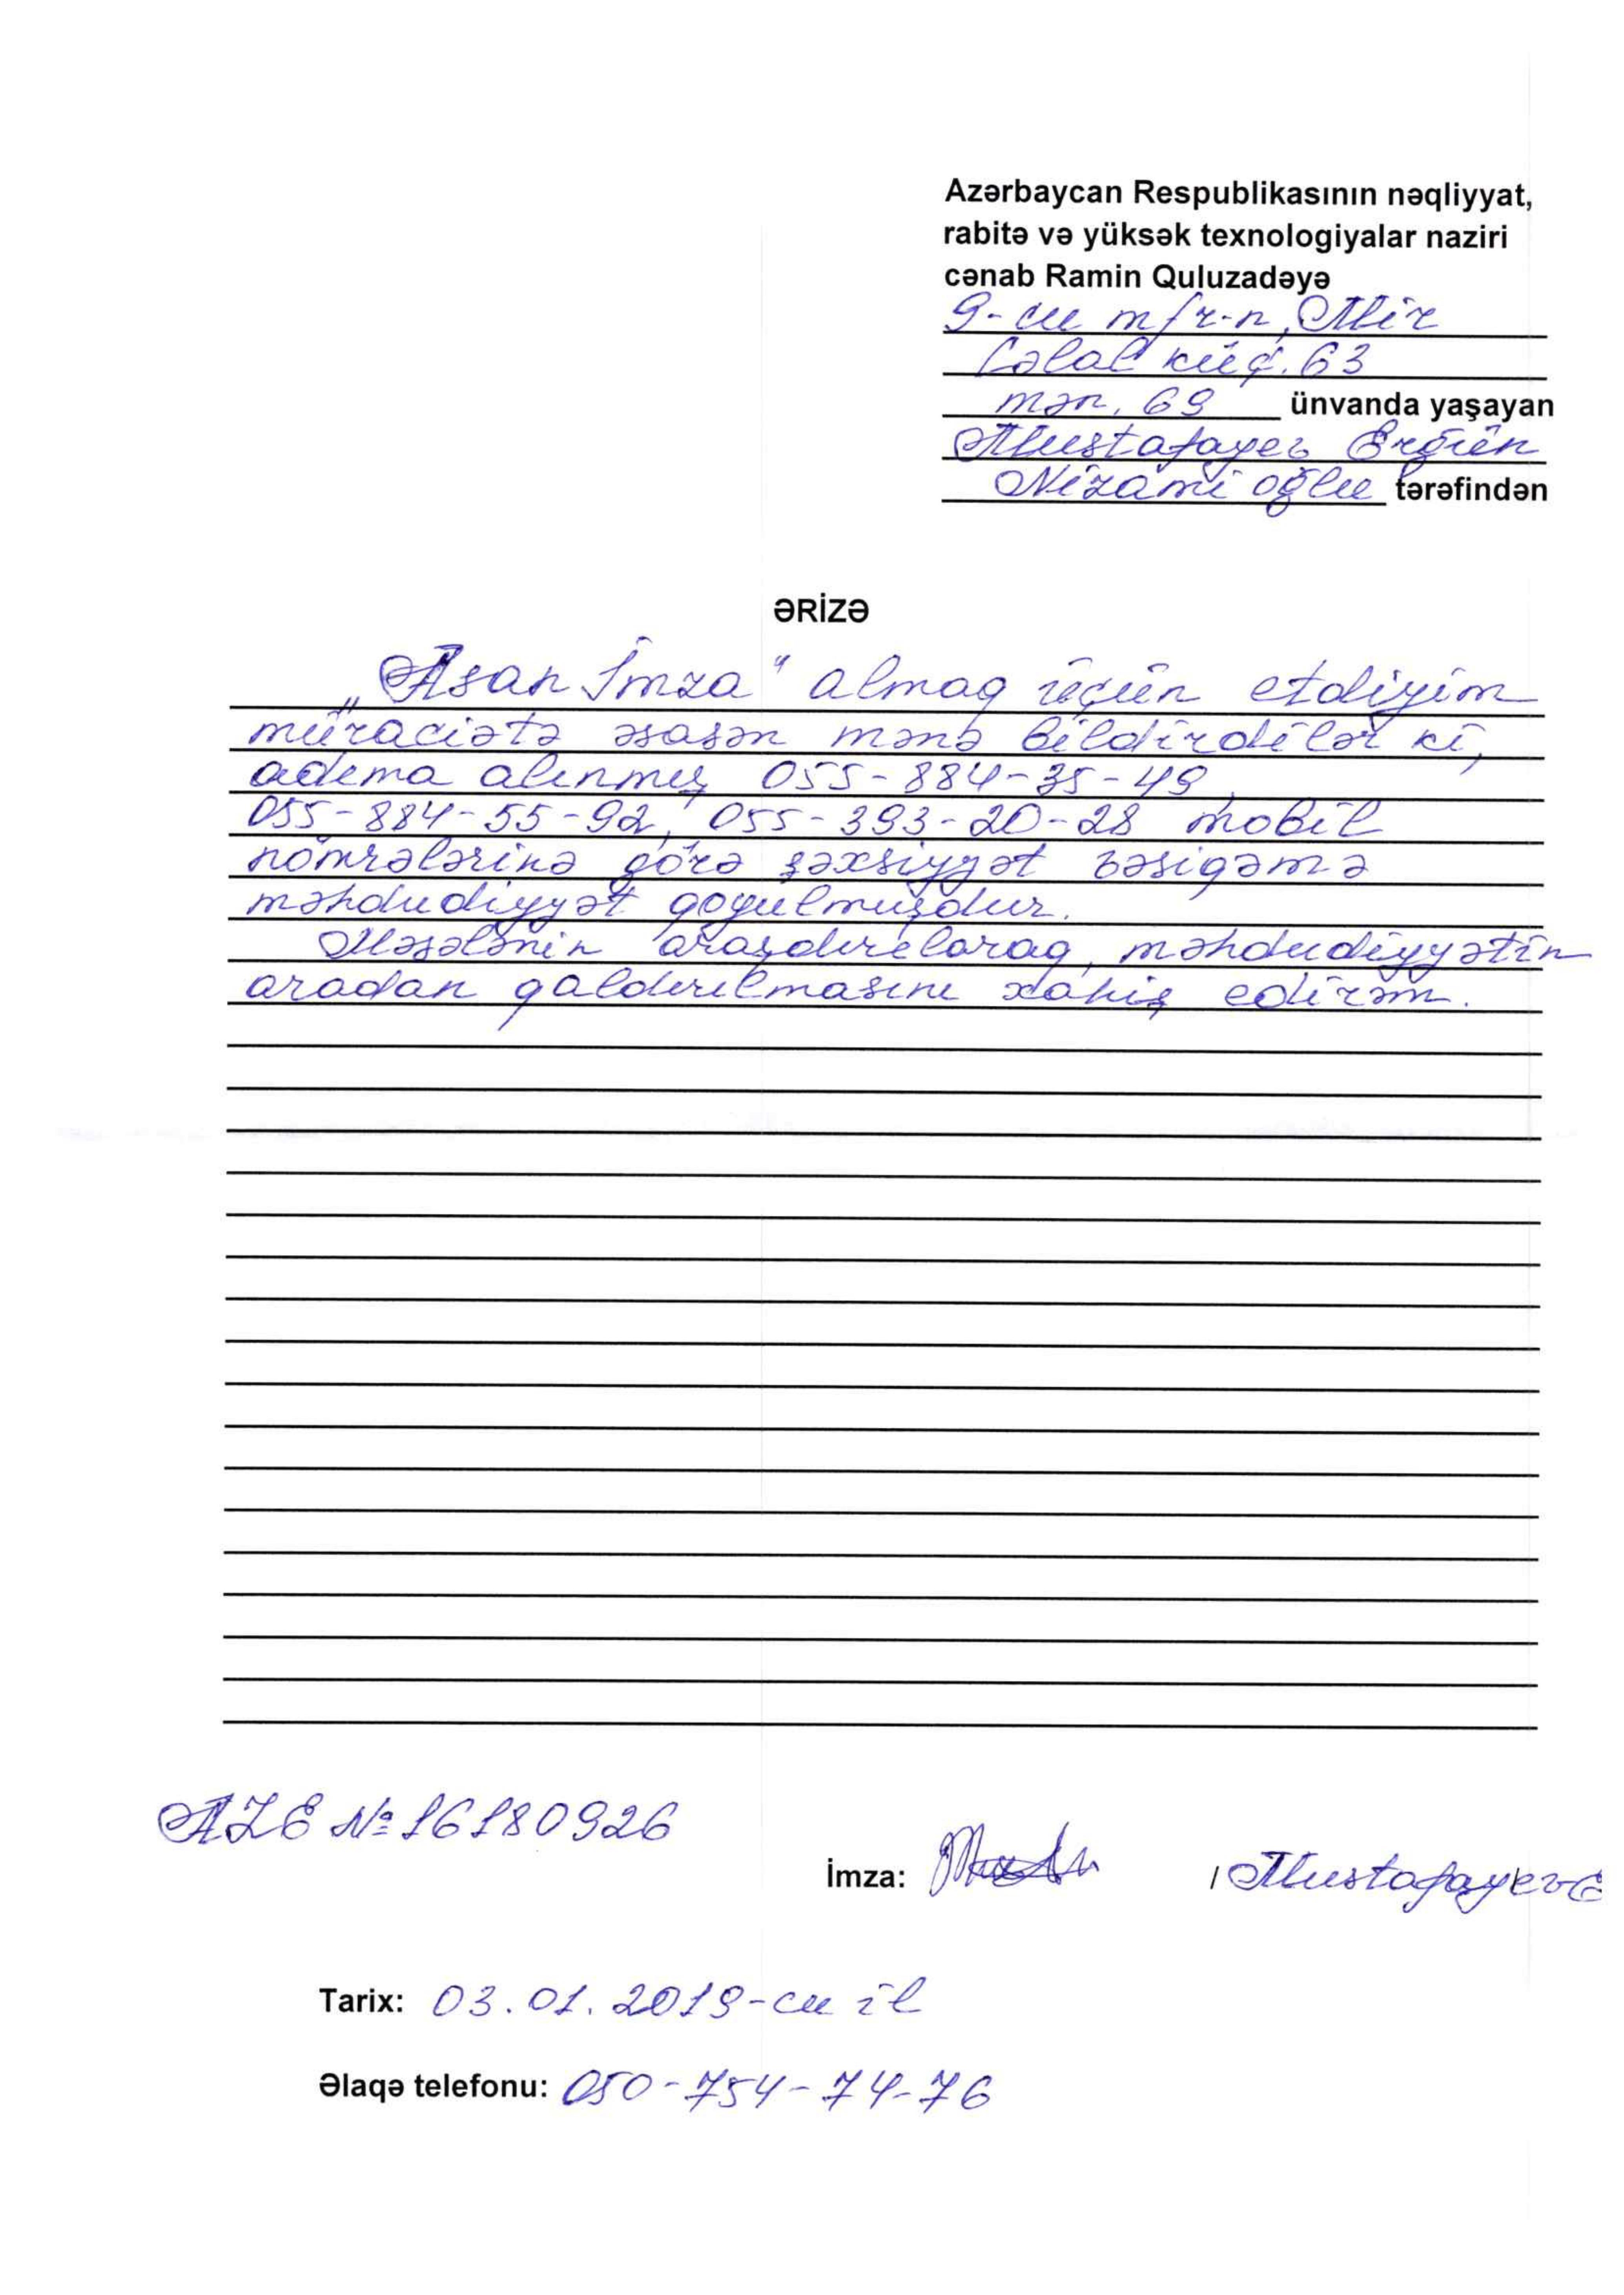 Azərbaycan Respublikasının nəqliyyat,
rabitə və yüksək texnologiyalar naziri
cənab Ramin Quluzadəyə
9-cu m/r-n, Mir
Cəlal küç. 63
mən. 69 ünvanda yaşayan
Mustafayev Ergün
Nizami oğlu tərəfindən
ƏRİZƏ
„Asan İmza“ almaq üçün etdiyim
müraciətə əsasən mənə bildirdilər ki,
adıma alınmış 055-884-35-49,
055-884-55-92, 055-393-20-28 mobil
nömrələrinə görə şəxsiyyət vəsiqəmə
məhdudiyyət qoyulmuşdur.
Məsələnin araşdırılaraq, məhdudiyyətin
aradan qaldırılmasını xahiş edirəm.
AZE № 16180926
İmza: / Mustafayev E
Tarix: 03.01.2019-cu il
Əlaqə telefonu: 050-754-74-76